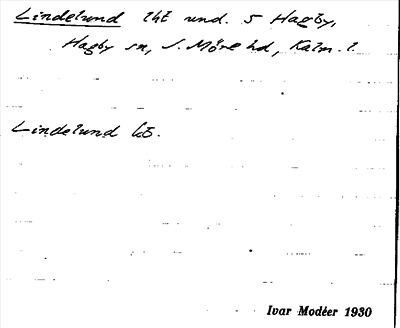 Lindelund lht und. 5 Hagby,
Hagby sn, S. Möre hd, Kalm. l.
Lindelund
Ivar Modéer 1930